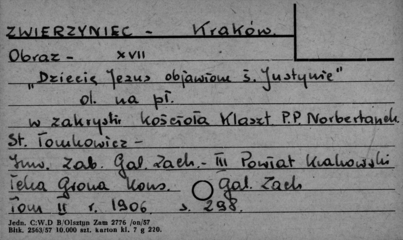 ZWIERZYNIEC - Kraków.
Obraz - XVII
"Dziecię Jezus objawione ś. Justynie"
ol. na pł.
w zakrystii kościoła Klaszt. P.P. Norbertanek
St. Tomkowicz -
Inw. Zab. Gal. Zach. - III Powiat Krakowski
Teka Grona Kons. Gal. Zach
Tom II r. 1906. s. 298.
Jedn. C:W.D B/Olsztyn Zam 2776 /on/57
Bltk. 2563/57 10.000 szt. karton kl. 7 g 220.